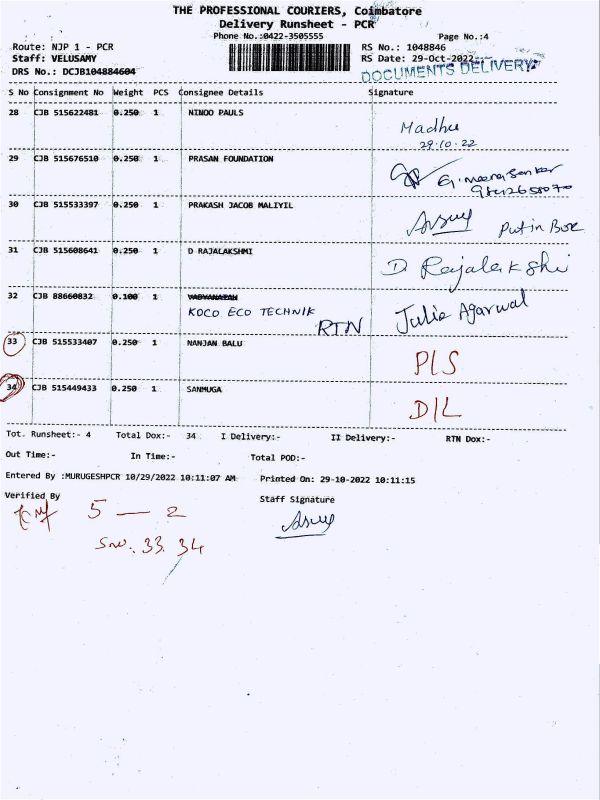 THE PROFESSIONAL COURIERS, Coimbatore
Delivery Runsheet - PCR
Phone No.:0422-3505555 Page No.:4
Route: NJP 1 - PCR RS No.: 1048846
Staff: VELUSAMY RS Date: 29-Oct-2022
DRS No.: DCJB104884604 DOCUMENTS DELIVERY
S No Consignment No Weight PCS Consignee Details Signature
28 CJB 515622481 0.250 1 NINOO PAULS
Madhu
29.10.22
29 CJB 515676510 0.250 1 PRASAN FOUNDATION
30 CJB 515533397 0.250 1 PRAKASH JACOB MALIYIL
Put in Box
31 CJB 515608641 0.250 1 D RAJALAKSHMI
D Rajalakshi
32 CJB 88660832 0.100 1
KOCO ECO TECHNIK RTN Julie Agarwal
33 CJB 515533407 0.250 1 NANJAN BALU
P/S
34 CJB 515449433 0.250 1 SANMUGA
D/L
Tot. Runsheet:- 4 Total Dox:- 34 I Delivery:- II Delivery:- RTN Dox:-
Out Time:- In Time:- Total POD:-
Entered By :MURUGESHPCR 10/29/2022 10:11:07 AM Printed On: 29-10-2022 10:11:15
Verified By Staff Signature
5 — 2
S.no. 33. 34